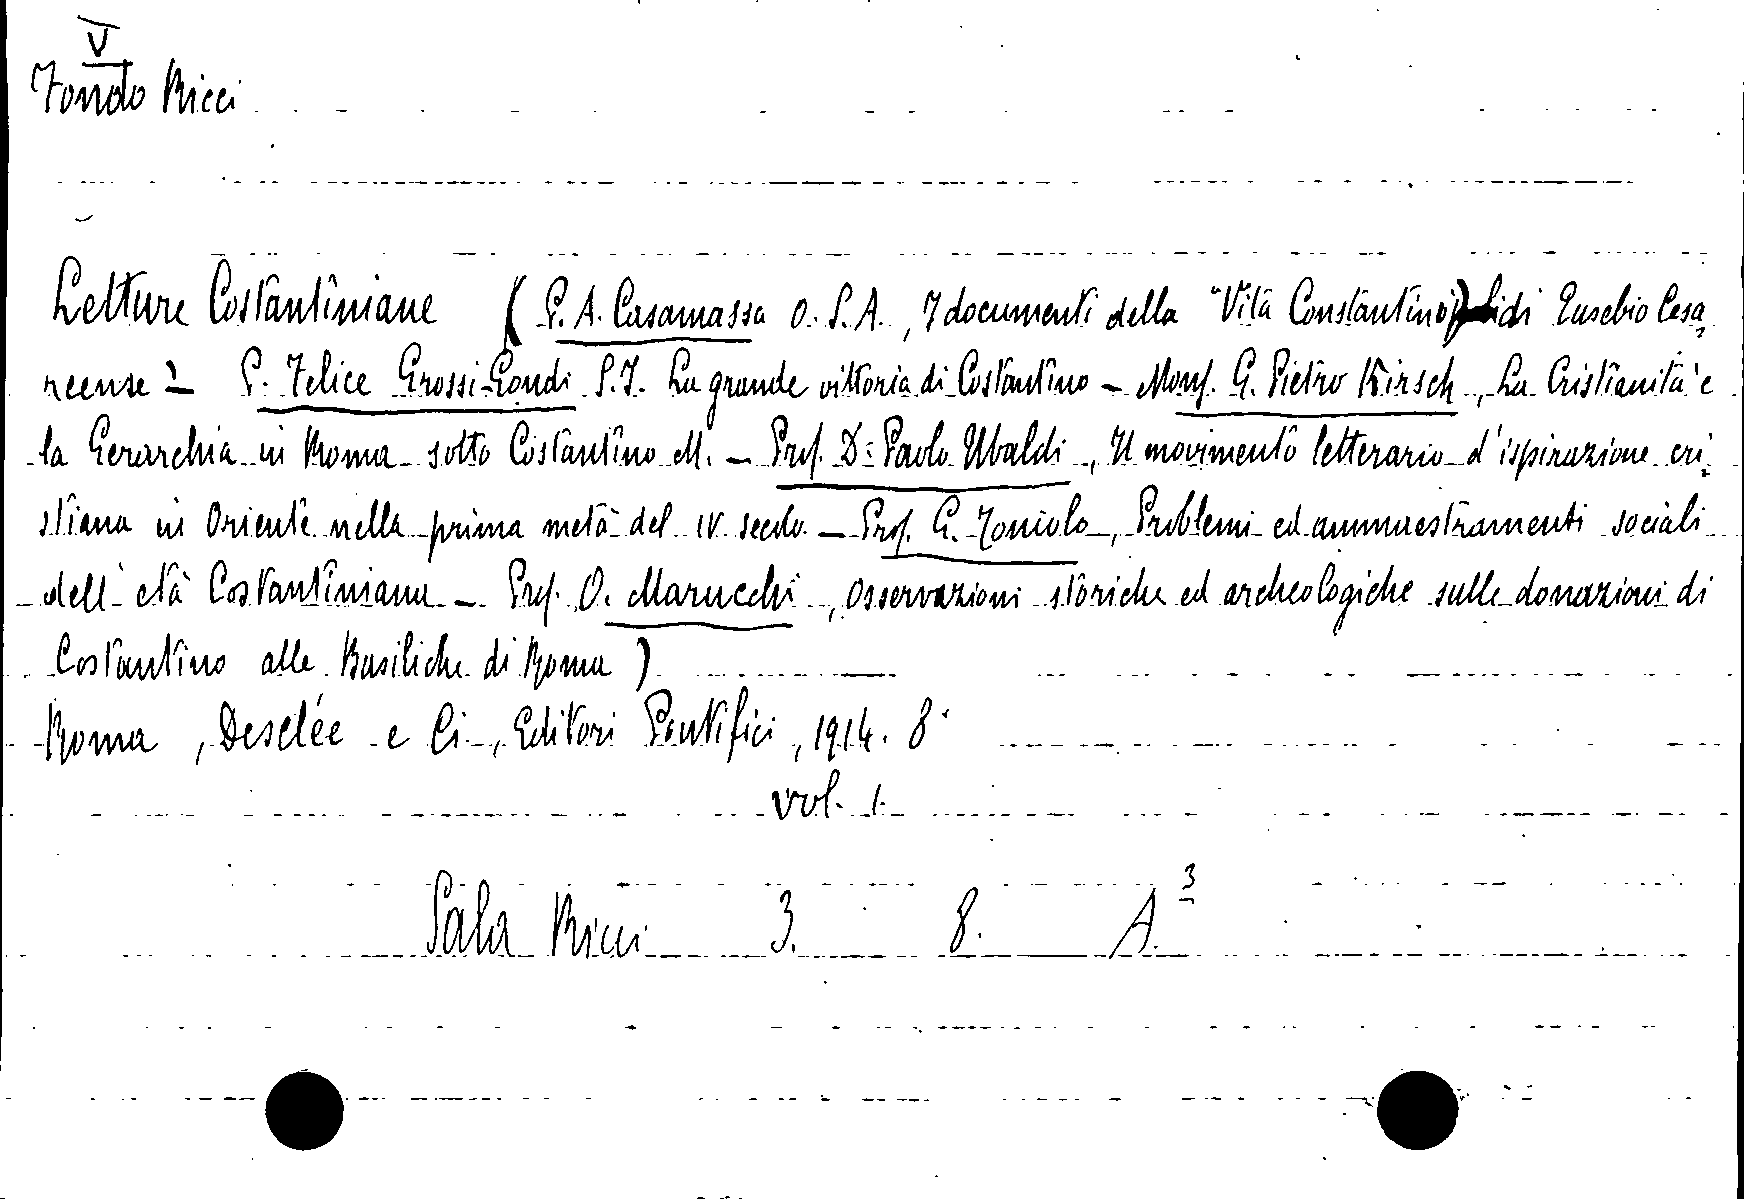 V
Fondo Ricci
Letture Costantiniane (P. A. Casamassa O. S. A., I documenti della "Vita Constantini" di Eusebio Cesa-
reense - P. Felice Grossi-Gondi S. I. La grande vittoria di Costantino - Mons. G. Pietro Kirsch, La Cristianità e
la Gerarchia in Roma sotto Costantino M. - Prof. D: Paolo Ubaldi, Il movimento letterario d'ispirazione cri-
stiana in Oriente nella prima metà del IV secolo. - Prof. G. Toniolo, Problemi ed ammaestramenti sociali
dell'età Costantiniana - Prof. O. Marucchi, Osservazioni storiche ed archeologiche sulle donazioni di
Costantino alle Basiliche di Roma)
Roma, Desclée e Ci., Editori Pontifici, 1914. 8°
vol. 1.
Sala Ricci 3. 8. A.3